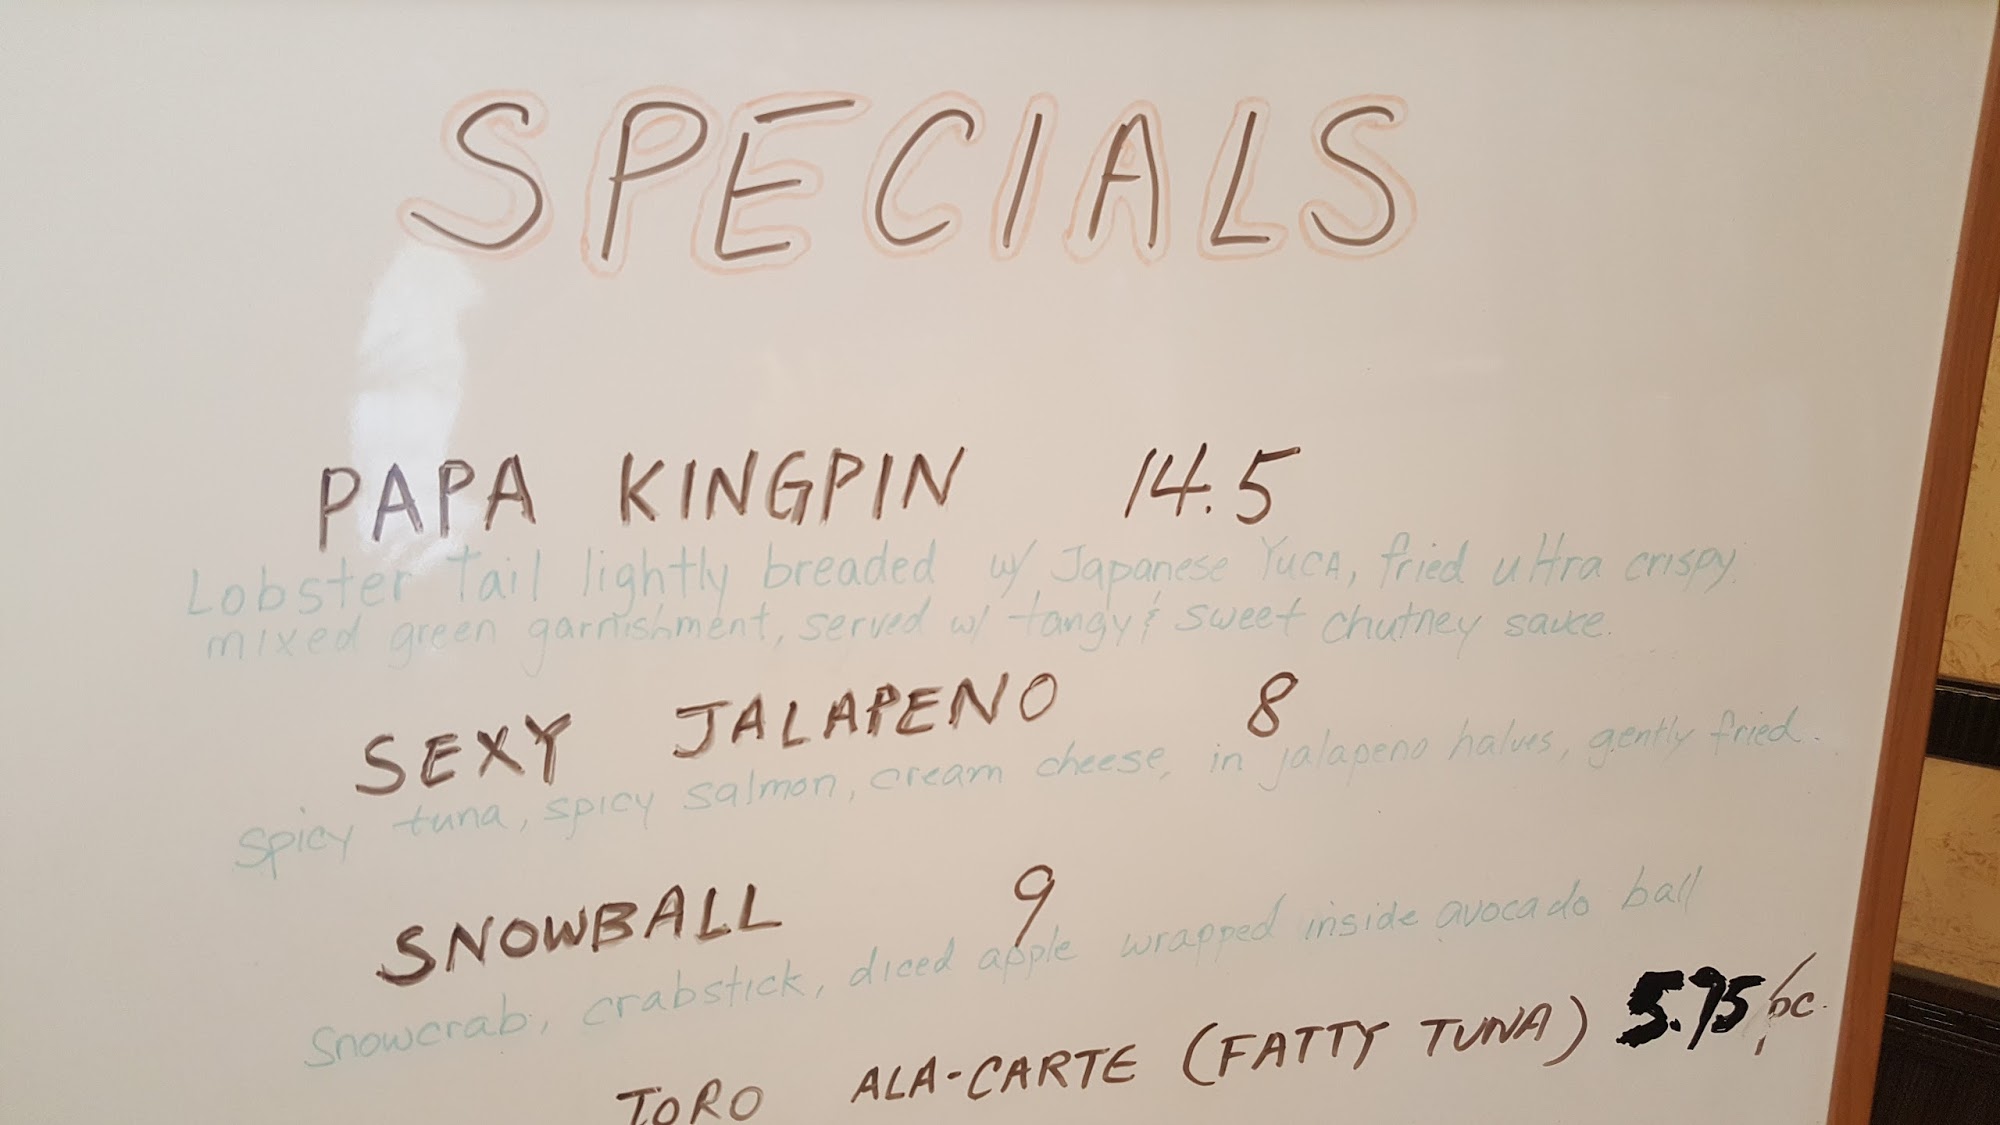 SPECIALS
PAPA KINGPIN 14.5
Lobster Tail lightly breaded w/ Japanese Yuca, fried ultra crispy.
mixed green garnishment, served w/ tangy & sweet chutney sauce.
SEXY JALAPENO 8
spicy tuna, spicy salmon, cream cheese, in jalapeno halves, gently fried.
SNOWBALL 9
snowcrab, crabstick, diced apple wrapped inside avocado ball
TORO ALA-CARTE (FATTY TUNA) 5.75/pc.